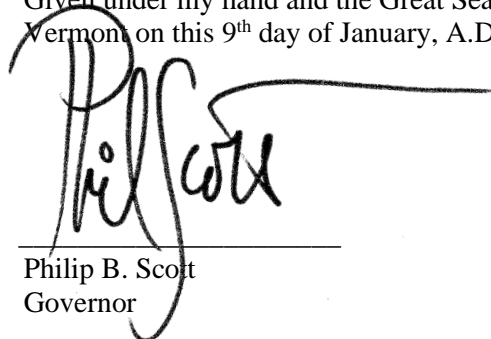 Given under my hand and the Great Sea
Vermont on this 9th day of January, A.D
Phil Scott
Philip B. Scott
Governor